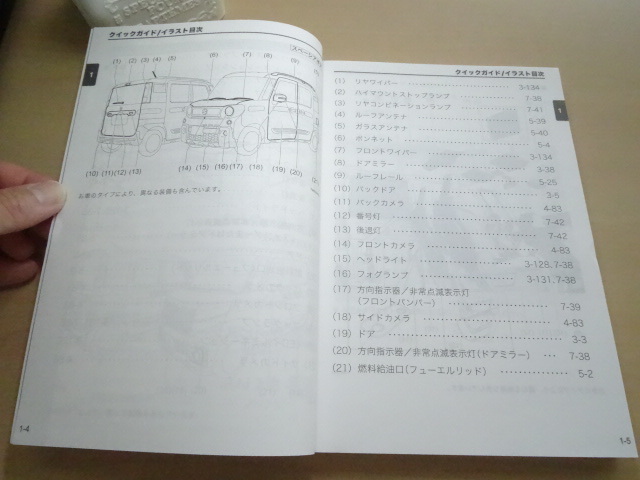 クイックガイド/イラスト目次
1
(1) (2) (3) (4) (5) (6) (7) (8) (9)
(10) (11)(12) (13) (14) (15) (16) (17) (18) (19) (20)
お車のタイプにより、異なる装備も含んでいます。
1-4
クイックガイド/イラスト目次
1
(1) リヤワイパー 3-134
(2) ハイマウントストップランプ 7-38
(3) リヤコンビネーションランプ 7-41
(4) ルーフアンテナ 5-39
(5) ガラスアンテナ 5-40
(6) ボンネット 5-4
(7) フロントワイパー 3-134
(8) ドアミラー 3-38
(9) ルーフレール 5-25
(10) バックドア 3-6
(11) バックカメラ 4-83
(12) 番号灯 7-42
(13) 後退灯 7-42
(14) フロントカメラ 4-83
(15) ヘッドライト 3-128、7-38
(16) フォグランプ 3-131、7-38
(17) 方向指示器/非常点滅表示灯
(フロントバンパー) 7-39
(18) サイドカメラ 4-83
(19) ドア 3-3
(20) 方向指示器/非常点滅表示灯(ドアミラー) 7-38
(21) 燃料給油口(フューエルリッド) 5-2
1-5